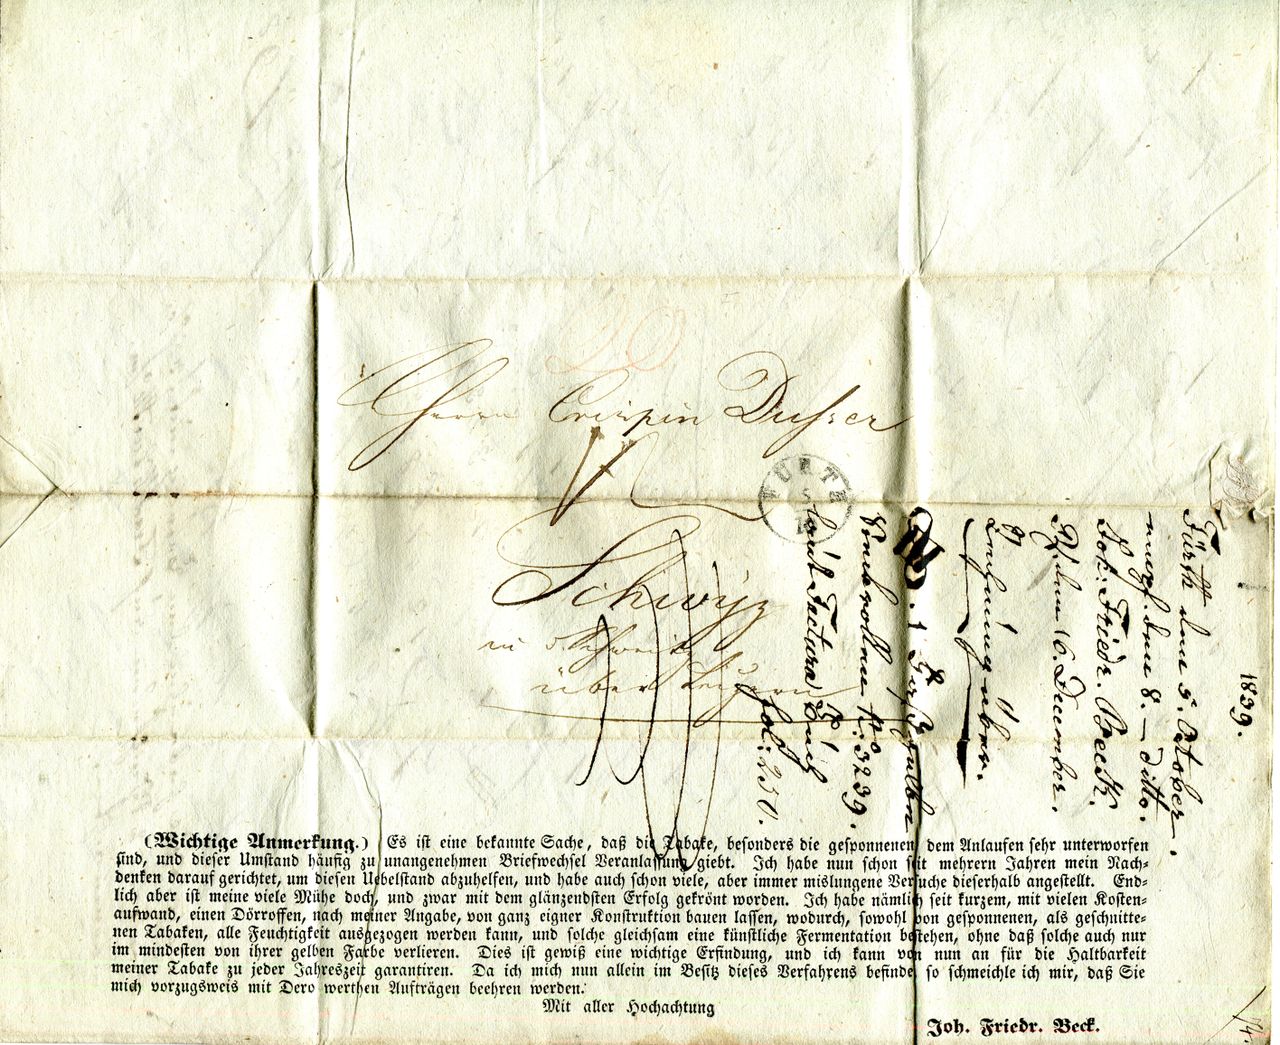 Herrn Crispin Dusser
Schwÿz
in d. Schweitz
über Luzern
FÜRTH
1839.
Fürth den 5. October.
empf. den 8. — ditto.
Joh: Friedr. Beck.
den 16. December.
No. 3239.
laut Factura
fol: 230.
(Wichtige Anmerkung.) Es ist eine bekannte Sache, daß die Tabake, besonders die gesponnenen, dem Anlaufen sehr unterworfen
sind, und dieser Umstand häufig zu unangenehmen Briefwechsel Veranlassung giebt. Ich habe nun schon seit mehrern Jahren mein Nach-
denken darauf gerichtet, um diesen Uebelstand abzuhelfen, und habe auch schon viele, aber immer mislungene Versuche dieserhalb angestellt. End-
lich aber ist meine viele Mühe doch, und zwar mit dem glänzendsten Erfolg gekrönt worden. Ich habe nämlich seit kurzem, mit vielen Kosten-
aufwand, einen Dörroffen, nach meiner Angabe, von ganz eigner Konstruktion bauen lassen, wodurch, sowohl von gesponnenen, als geschnitte-
nen Tabaken, alle Feuchtigkeit ausgezogen werden kann, und solche gleichsam eine künstliche Fermentation bestehen, ohne daß solche auch nur
im mindesten von ihrer gelben Farbe verlieren. Dies ist gewiß eine wichtige Erfindung, und ich kann von nun an für die Haltbarkeit
meiner Tabake zu jeder Jahreszeit garantiren. Da ich mich nun allein im Besitz dieses Verfahrens befinde, so schmeichle ich mir, daß Sie
mich vorzugsweis mit Dero werthen Aufträgen beehren werden.
Mit aller Hochachtung
Joh. Friedr. Beck.